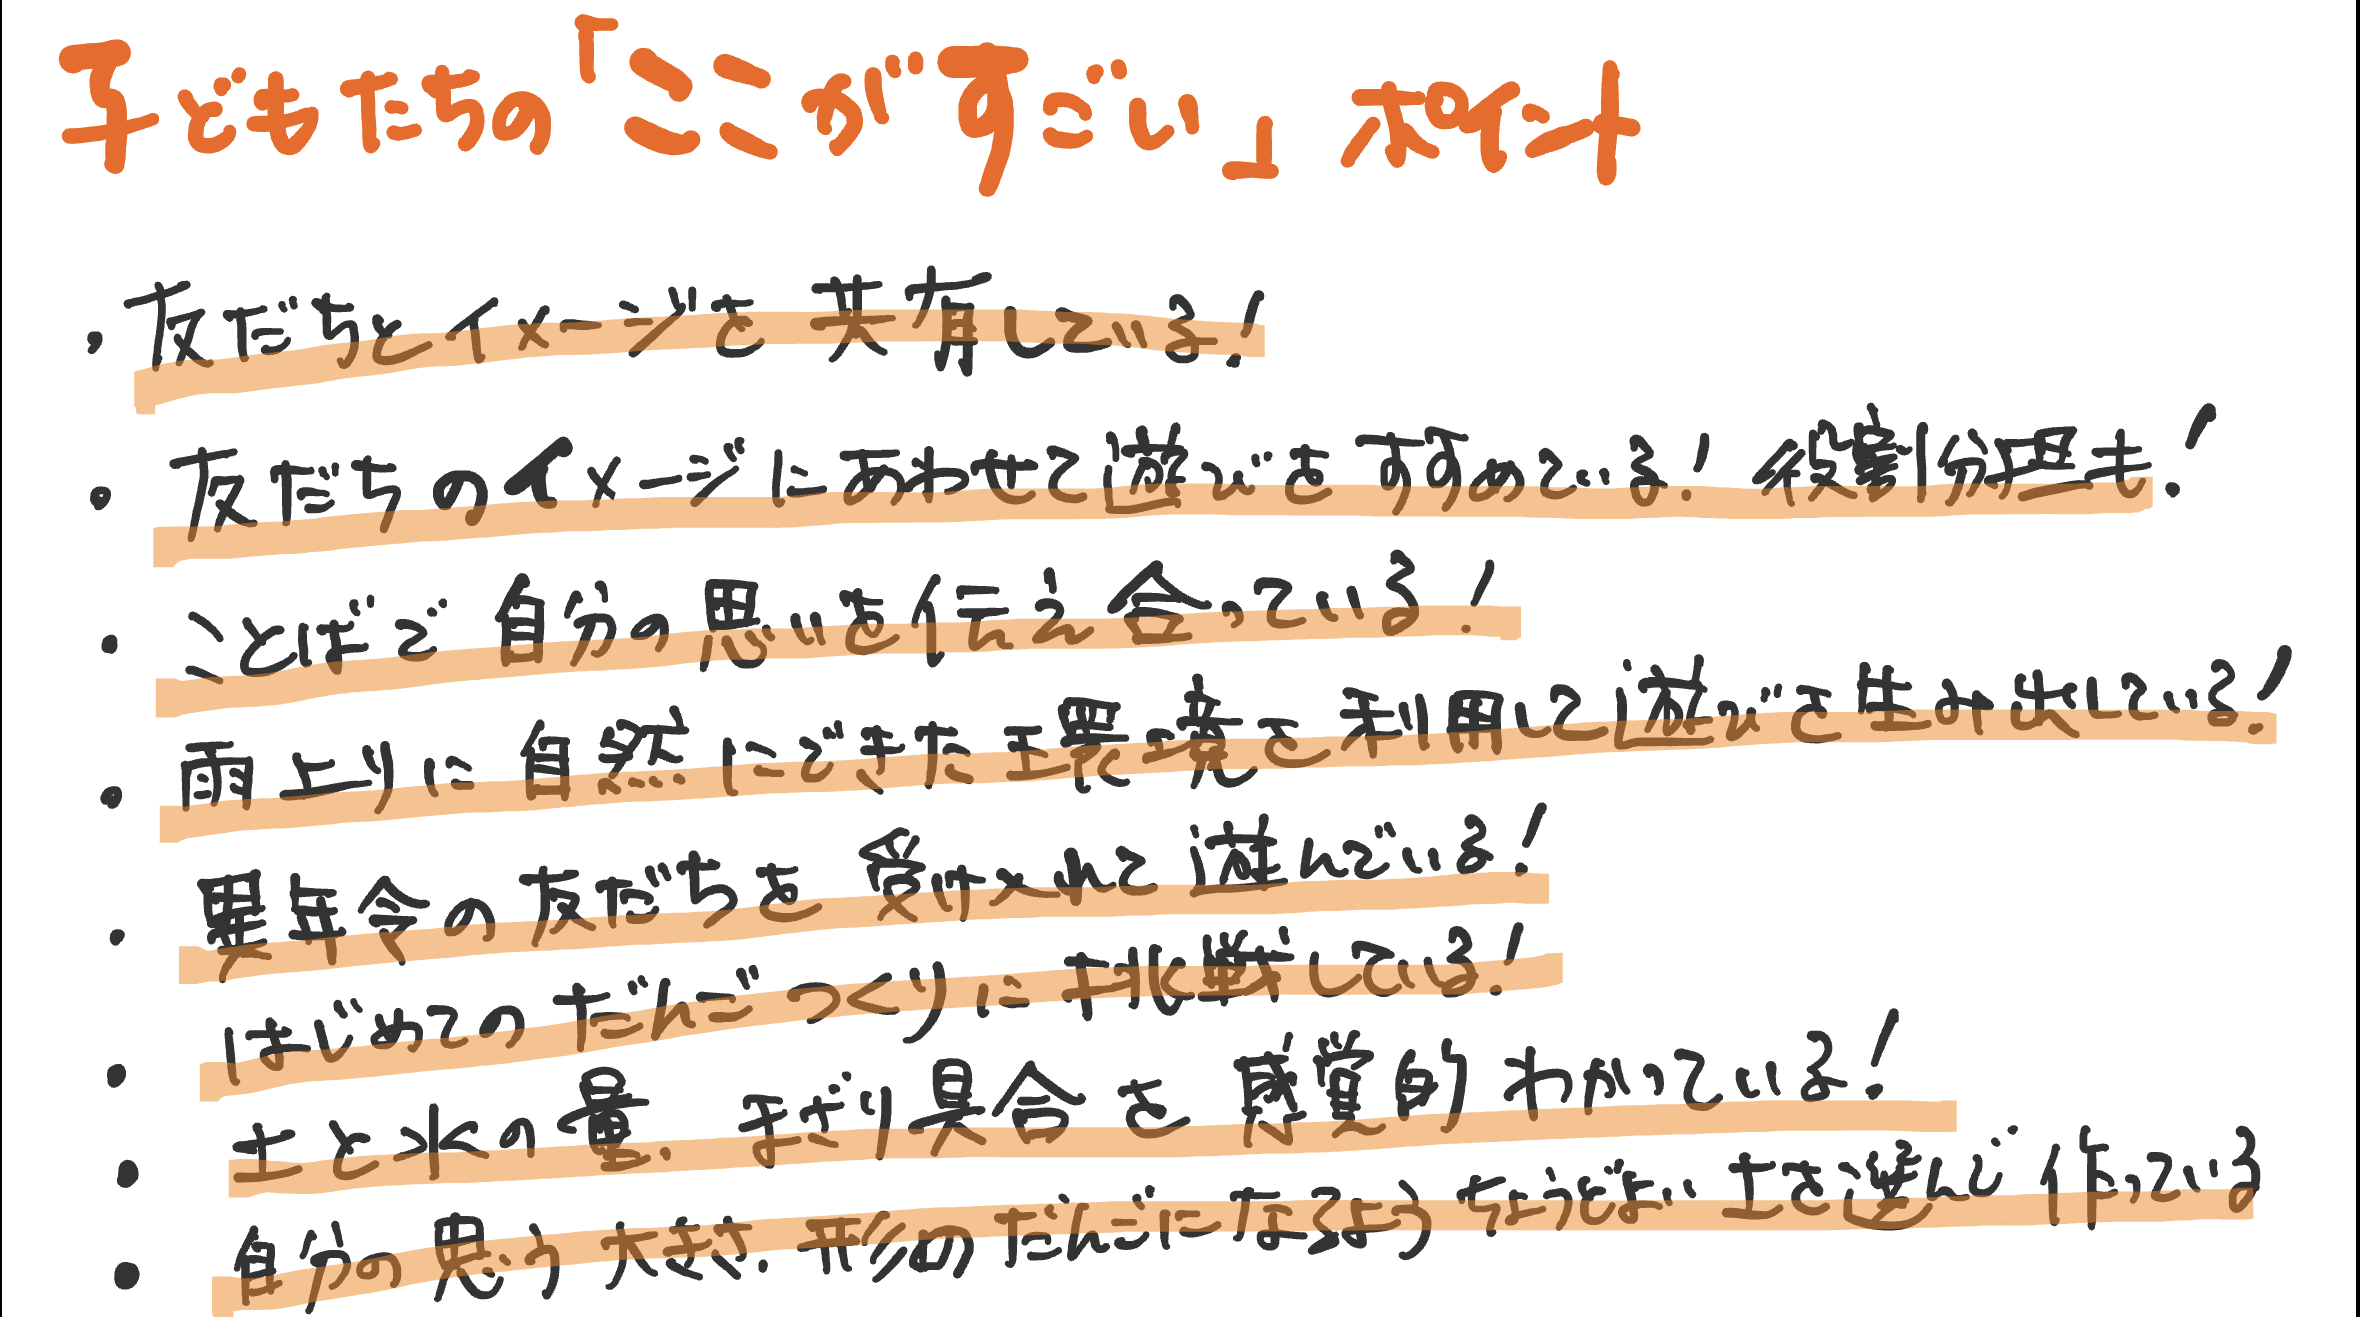 子どもたちの「ここがすごい」ポイント
・友だちとイメージを共有している!
・友だちのイメージにあわせて遊びをすすめている!役割分担も!
・ことばで自分の思いを伝え合っている!
・雨上りに自然にできた環境を利用して遊びを生み出している!
・異年令の友だちを受け入れて遊んでいる!
・はじめてのだんごつくりに挑戦している!
・土と水の量、まざり具合を感覚的わかっている!
・自分の思う大きさ、形のだんごになるようちょうどよい土を選んで作っている